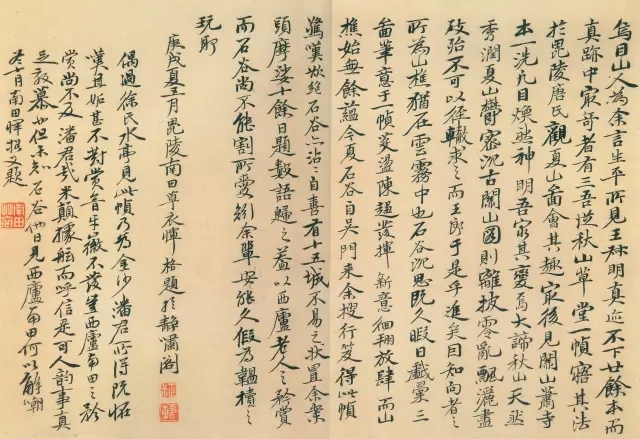 烏目山人為余言生平所見王叔明真迹不下廿餘本而
真跡中最奇者有三吾從秋山草堂一幀寤其法
於毘陵唐氏觀夏山圖會其趣最後見關山蕭寺
本一洗凡目煥然神明吾窮其變焉大諦秋山天然
秀潤夏山鬱密沉古關山圖則離披零亂飄灑盡
致殆不可以徑轍求之而王郎于是乎進矣因知向者之
所為山樵猶在雲霧中也石谷沉思既久暇日戲彙三
圖筆意于一幀滌盪陳趨發揮新意徊翔放肆而山
樵始無餘蘊今夏石谷自吳門來余搜行笈得此幀
驚嘆欲絕石谷亦沾沾自喜有十五城不易之狀置余案
頭摩娑十餘日題數語歸之蓋以西廬老人之矜賞
而石谷尚不能割所愛矧余輩安能久假為韞櫝之
玩耶
庚戌夏五月毘陵南田草衣惲格題於靜嘯閣
偶過徐氏水亭見此幀乃為金沙潘君所得既怪
嘆且妬甚不對賞音牙徽不發豈西廬南田之矜
賞尚不及潘君哉米顛據舷而呼信是可人韵事真
足效慕也但未知石谷他日見西廬南田何以解嘲
冬十月南田惲格又題